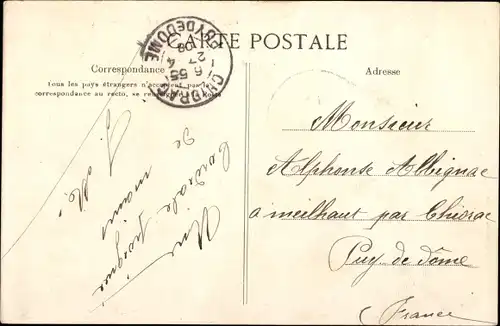 CARTE POSTALE
Correspondance
Tous les pays étrangers n'acceptent pas la
correspondance au recto, se renseigner à la Poste
Adresse
PUY DE DOME
6 55
27
4
08
Une
Cordiale poignée
de mains
Monsieur
Alphonse Albignac
a meilhaut par Chidrac
Puy de dôme
(France